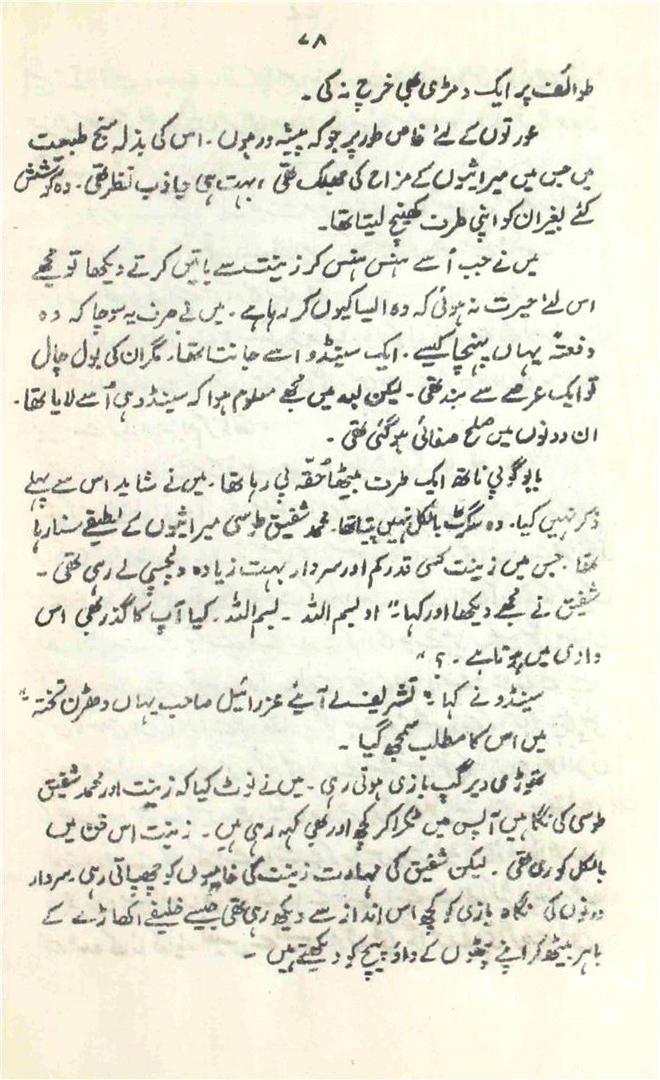 ۷۸
طوائف پر ایک دمڑی بھی خرچ نہ کی۔
عورتوں کے لئے خاص طور پر جو کہ پیشہ ور ہوں۔ اس کی بذلہ سنج طبیعت
میں جس میں میراثیوں کے مزاح کی جھلک تھی، بہت ہی جاذب نظر تھی۔ وہ کوشش
کئے بغیر ان کو اپنی طرف کھینچ لیتا تھا۔
میں نے جب اُسے ہنس ہنس کر زینت سے باتیں کرتے دیکھا تو مجھے
اس لئے حیرت نہ ہوئی کہ وہ ایسا کیوں کر رہا ہے۔ میں نے صرف یہ سوچا کہ وہ
دفعتہً یہاں پہنچا کیسے۔ ایک سینڈو اسے جانتا تھا۔ مگر ان کی بول چال
تو ایک عرصے سے بند تھی۔ لیکن بعد میں مجھے معلوم ہوا کہ سینڈو ہی اُسے لایا تھا۔
ان دونوں میں صلح صفائی ہو گئی تھی۔
بابو گوپی ناتھ ایک طرف بیٹھا حُقہ پی رہا تھا۔ میں نے شاید اس سے پہلے
ذکر نہیں کیا۔ وہ سگرٹ بالکل نہیں پیتا تھا۔ محمد شفیق طوسی میراثیوں کے لطیفے سنا رہا
تھا۔ جس میں زینت کسی قدر کم اور سردار بہت زیادہ دلچسپی لے رہی تھی۔
شفیق نے مجھے دیکھا اور کہا "او بسم اللہ۔ بسم اللہ۔ کیا آپ کا گذر بھی اس
وادی میں ہوتا ہے۔؟"
سینڈو نے کہا "تشریف لے آیئے عزرائیل صاحب یہاں دھڑن تختہ"
میں اس کا مطلب سمجھ گیا۔
تھوڑی دیر گپ بازی ہوتی رہی۔ میں نے نوٹ کیا کہ زینت اور محمد شفیق
طوسی کی نگاہیں آپس میں ٹکرا کر کچھ اور بھی کہہ رہی ہیں۔ زینت اس فن میں
بالکل کوری تھی۔ لیکن شفیق کی مہارت زینت کی خامیوں کو چھپاتی رہی۔ سردار
دونوں کی نگاہ بازی کو کچھ اس انداز سے دیکھ رہی تھی جیسے خلیفے اکھاڑے کے
باہر بیٹھ کر اپنے پٹھوں کے داؤ پیچ کو دیکھتے ہیں۔